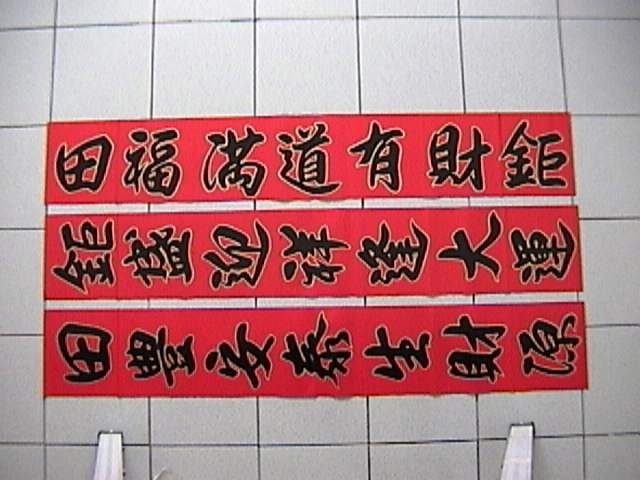 鉅財有道滿福田
鉅盛迎祥逢大運
田豐安泰生財源